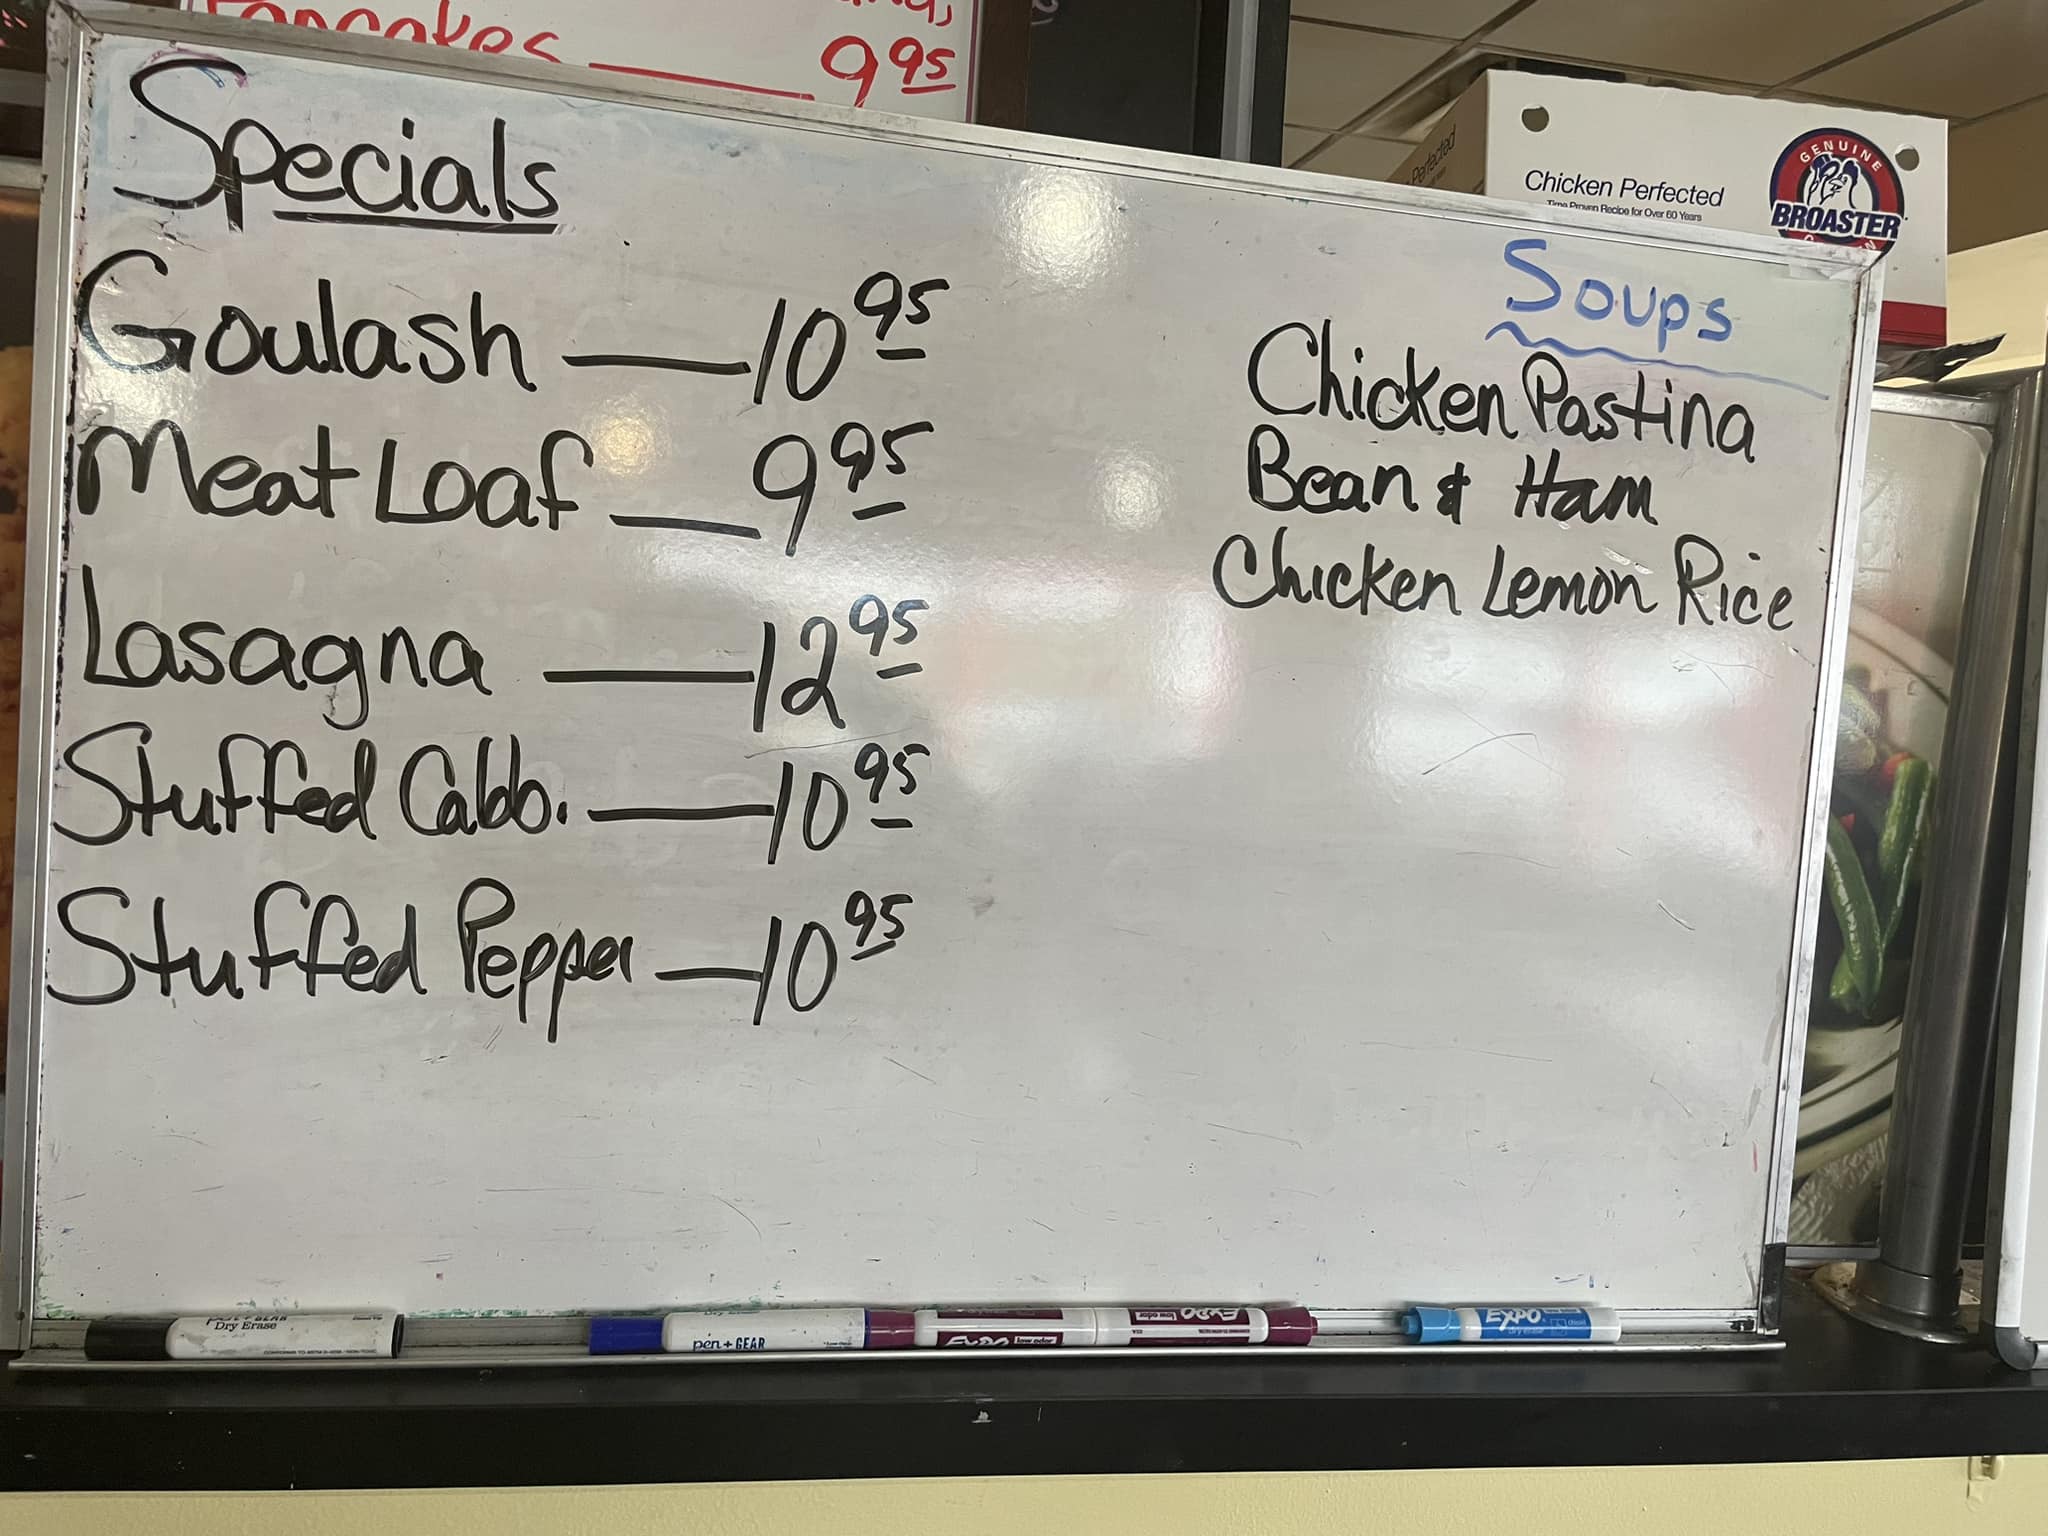 Pancakes 9.95
Specials
Goulash — 10.95
Meat Loaf — 9.95
Lasagna — 12.95
Stuffed Cabb. — 10.95
Stuffed Pepper — 10.95
Soups
Chicken Pastina
Bean & Ham
Chicken Lemon Rice
Chicken Perfected
Time Proven Recipe for Over 60 Years
GENUINE
BROASTER
Perfected
pen+GEAR
Dry Erase
pen+GEAR
EXPO low odor
EXPO low odor
EXPO
dry erase